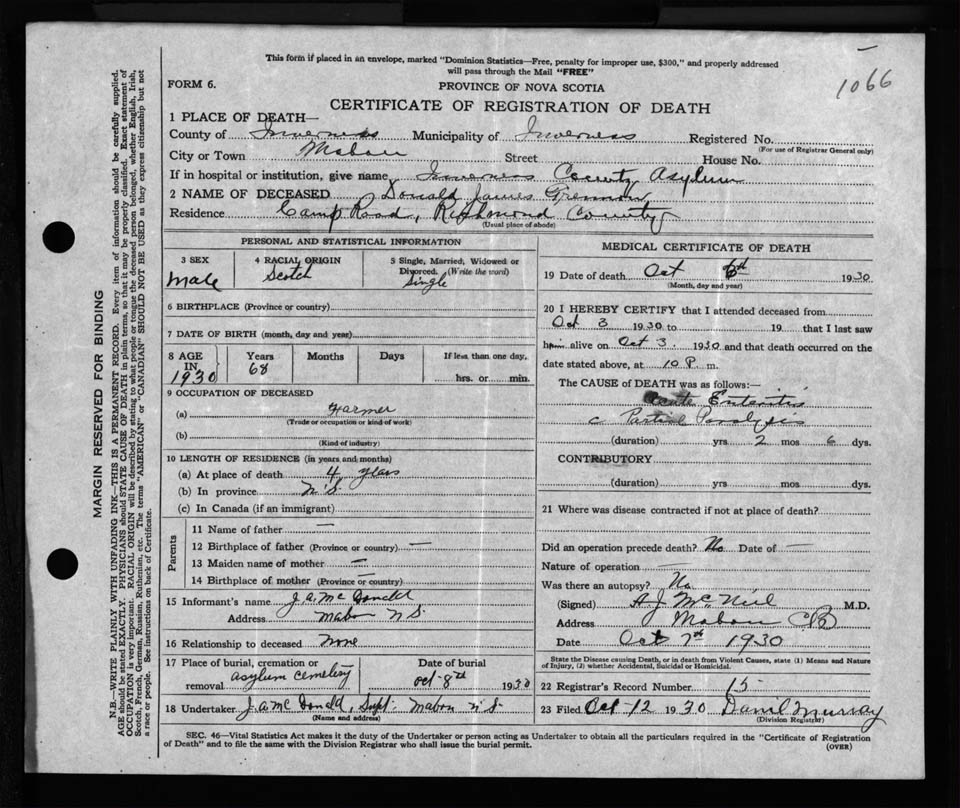 1066
This form if placed in an envelope, marked "Dominion Statistics—Free, penalty for improper use, $300," and properly addressed
will pass through the Mail "FREE"
FORM 6.
PROVINCE OF NOVA SCOTIA
CERTIFICATE OF REGISTRATION OF DEATH
1 PLACE OF DEATH—
County of Inverness Municipality of Inverness Registered No.
(For use of Registrar General only)
City or Town Mabou Street House No.
If in hospital or institution, give name Inverness County Asylum
2 NAME OF DECEASED Donald James
Residence Camp Road, Richmond County
(Usual place of abode)
PERSONAL AND STATISTICAL INFORMATION
3 SEX
male
4 RACIAL ORIGIN
Scotch
5 Single, Married, Widowed or
Divorced. (Write the word)
Single
6 BIRTHPLACE (Province or country)
7 DATE OF BIRTH (month, day and year)
8 AGE
IN
1930
Years
68
Months
Days
If less than one day.
hrs. or min.
9 OCCUPATION OF DECEASED
(a) Farmer
(Trade or occupation or kind of work)
(b)
(Kind of industry)
10 LENGTH OF RESIDENCE (in years and months)
(a) At place of death 4 years
(b) In province N.S.
(c) In Canada (if an immigrant)
Parents
11 Name of father —
12 Birthplace of father (Province or country) —
13 Maiden name of mother —
14 Birthplace of mother (Province or country) —
15 Informant's name J. A. Mc Donald
Address Mabou N S.
16 Relationship to deceased None
17 Place of burial, cremation or
removal Asylum Cemetery
Date of burial
Oct-8th 1930
18 Undertaker J. A. Mc Donald, Supt. Mabou N.S.
(Name and address)
MEDICAL CERTIFICATE OF DEATH
19 Date of death Oct 1930
(Month, day and year)
20 I HEREBY CERTIFY that I attended deceased from
Oct 3 1930 to 19 that I last saw
him alive on Oct 3. 1930 and that death occurred on the
date stated above, at 10 P. m.
The CAUSE of DEATH was as follows:
Acute Enteritis
c Partial Paralysis
(duration) yrs 2 mos 6 dys.
CONTRIBUTORY
(duration) yrs mos dys.
21 Where was disease contracted if not at place of death?
Did an operation precede death? No Date of —
Nature of operation —
Was there an autopsy? No
(Signed) A J McNeil M.D.
Address Mabou CB
Date Oct 7th 1930
State the Disease causing Death, or in death from Violent Causes, state (1) Means and Nature
of Injury, (2) whether Accidental, Suicidal or Homicidal.
22 Registrar's Record Number 15
23 Filed Oct-12 1930 Daniel Murray
(Division Registrar)
SEC. 46—Vital Statistics Act makes it the duty of the Undertaker or person acting as Undertaker to obtain all the particulars required in the "Certificate of Registration
of Death" and to file the same with the Division Registrar who shall issue the burial permit.
(OVER)
MARGIN RESERVED FOR BINDING
N.B.—WRITE PLAINLY WITH UNFADING INK—THIS IS A PERMANENT RECORD. Every item of information should be carefully supplied.
AGE should be stated EXACTLY. PHYSICIANS should STATE CAUSE OF DEATH in plain terms, so that it may be properly classified. Exact statement of
OCCUPATION is very important. RACIAL ORIGIN will be described by stating to what people or tongue the deceased person belonged, whether English, Irish,
Scotch, French, German, Russian, Ruthenian, etc. The terms "AMERICAN" or "CANADIAN" SHOULD NOT BE USED as they express citizenship but not
a race or people. See instructions on back of Certificate.